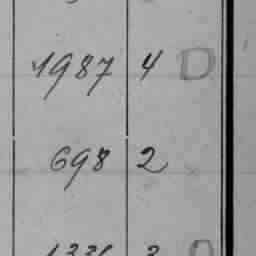 1987 4 D
698 2